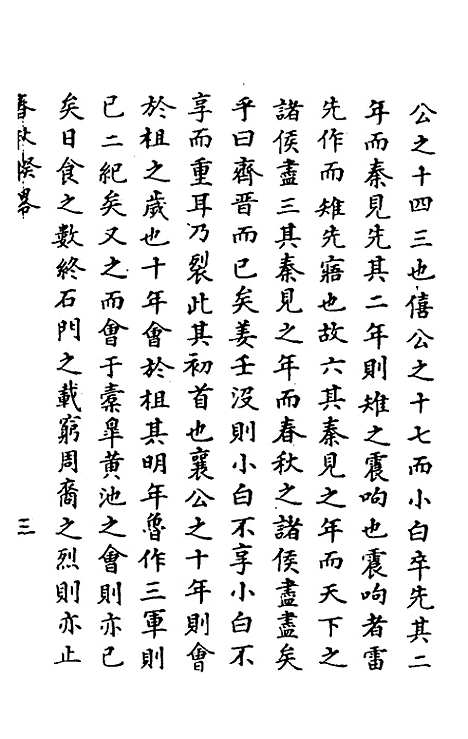 公之十四三也僖公之十七而小白卒先其二
年而秦見先其二年則雉之震呴也震呴者雷
先作而雉先寤也故六其秦見之年而天下之
諸侯盡三其秦見之年而春秋之諸侯盡盡矣
乎曰齊晋而已矣姜壬没則小白不享小白不
享而重耳乃裂此其初首也襄公之十年則會
於柤之歲也十年會於柤其明年魯作三軍則
已二紀矣又之而會于橐皐黄池之會則亦已
矣日食之數終石門之載窮周裔之烈則亦止
春秋揆畧
三